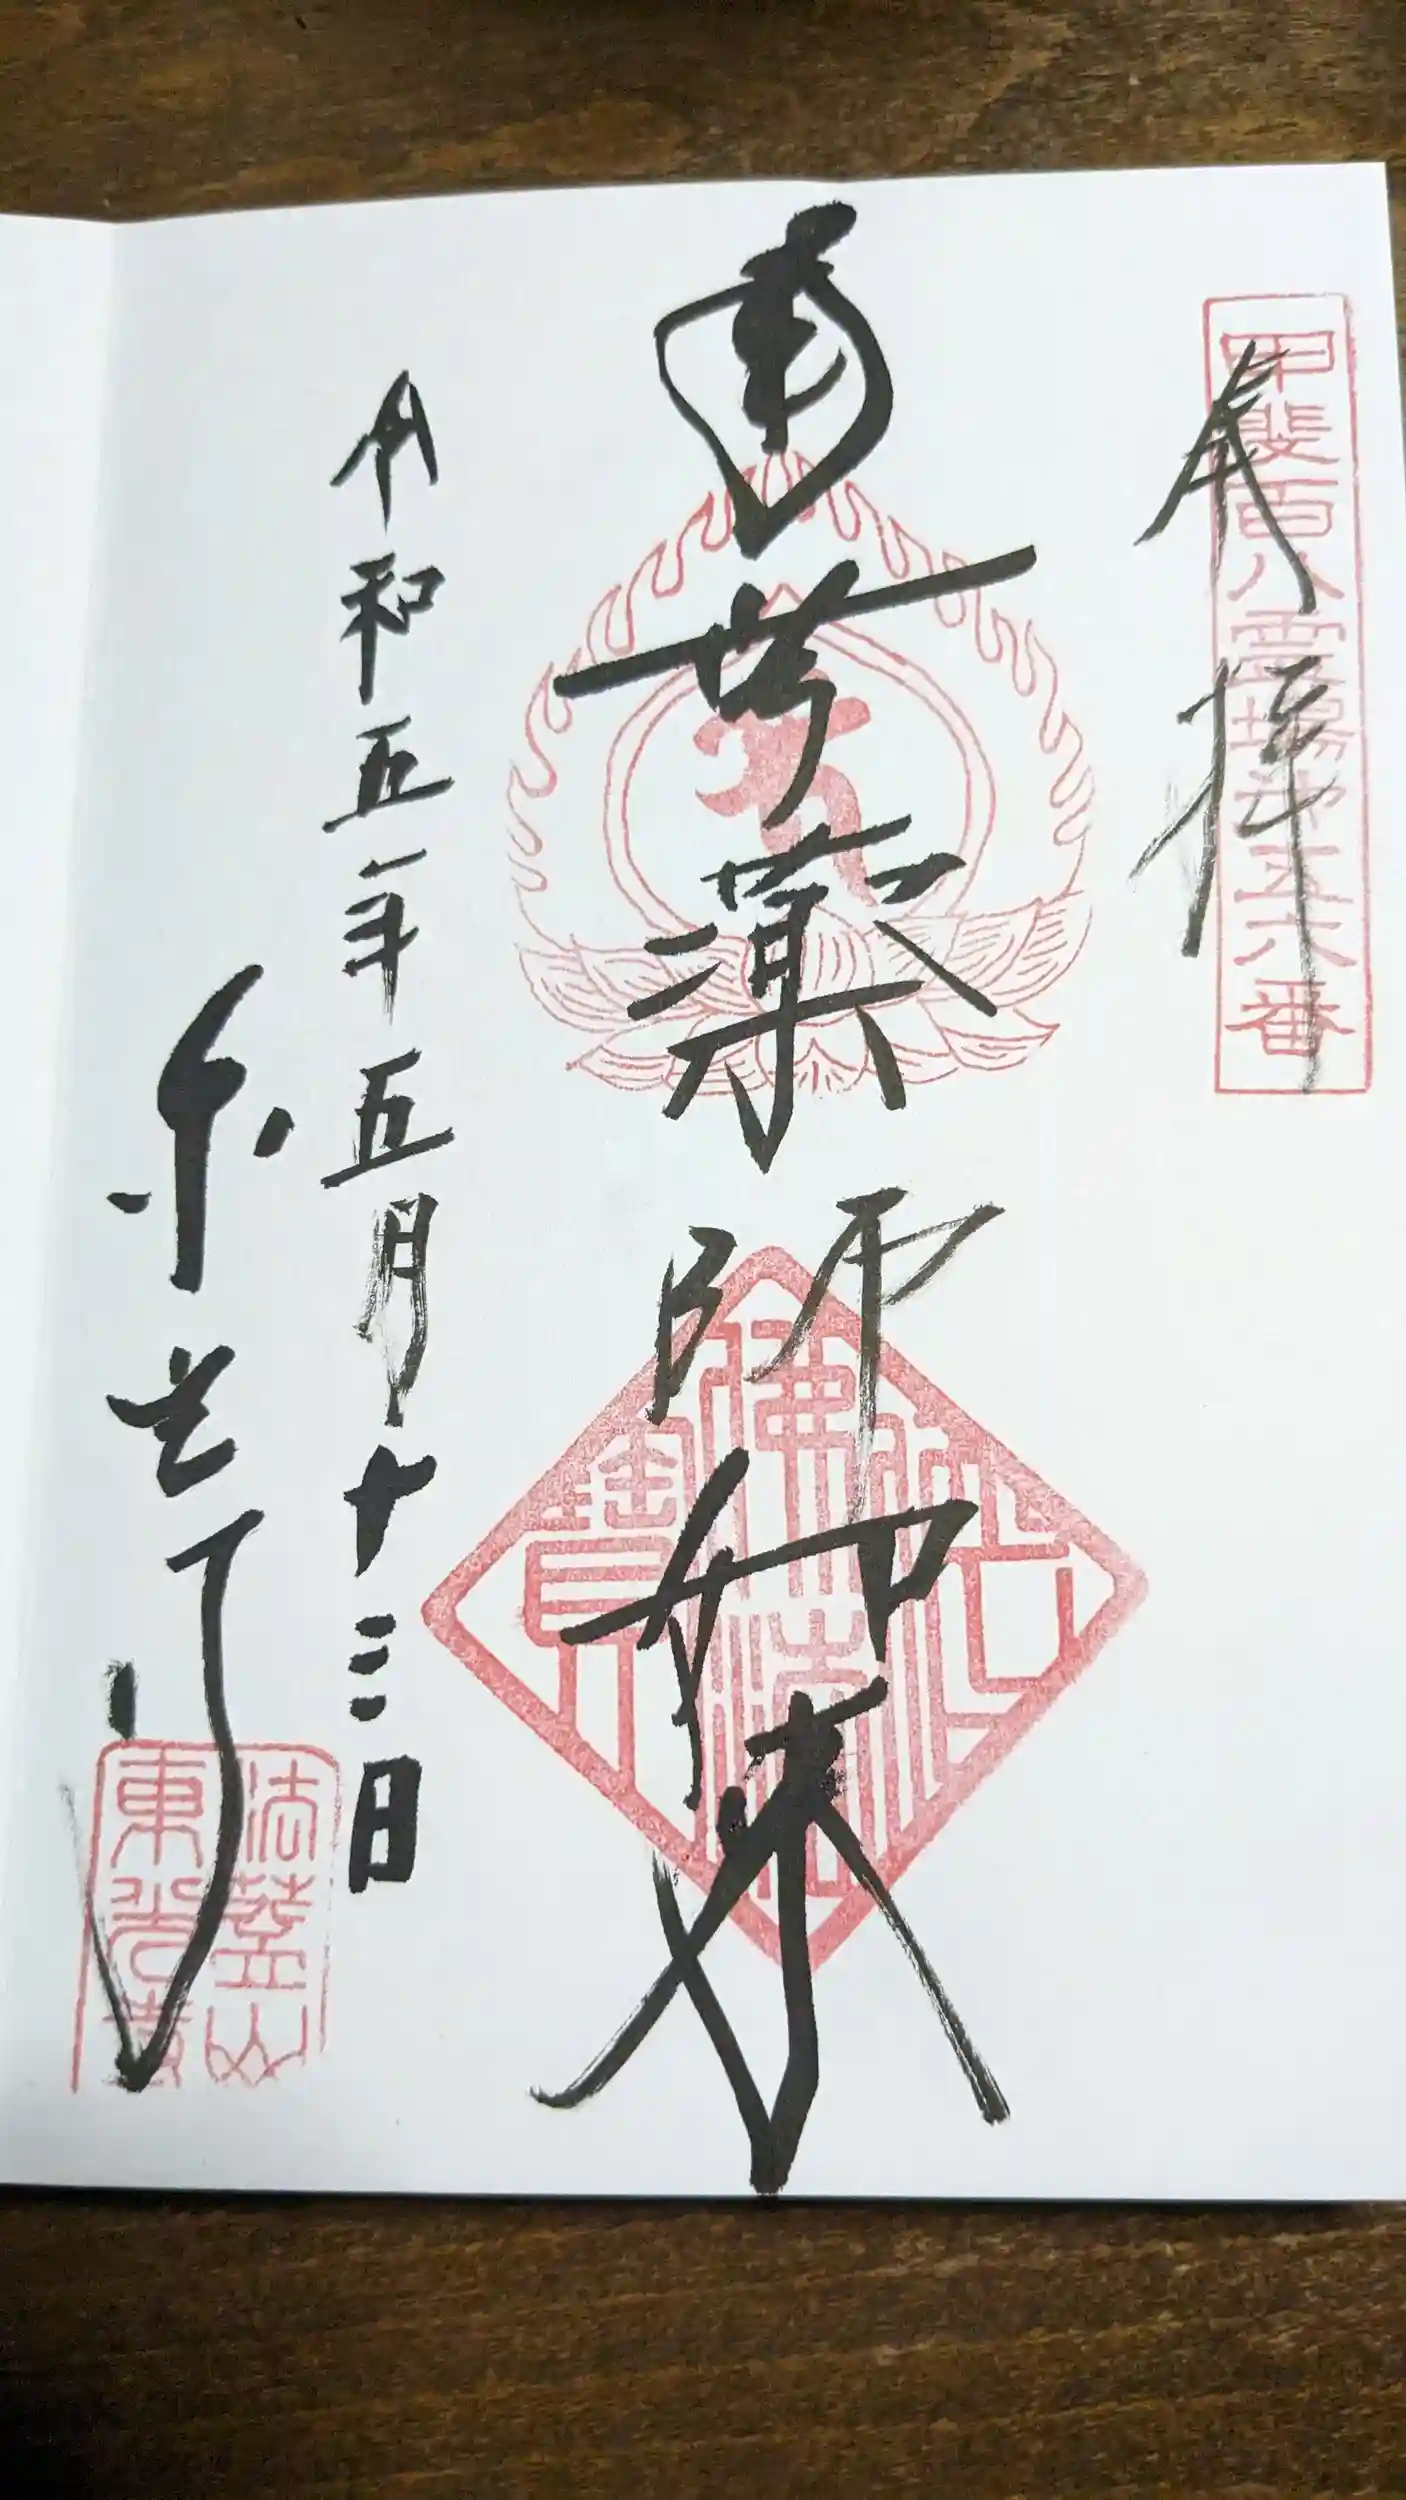 甲斐百八霊場第五六番
奉拝
南無薬師如来
令和五年五月十三日
東光寺
法蓋山
東光寺